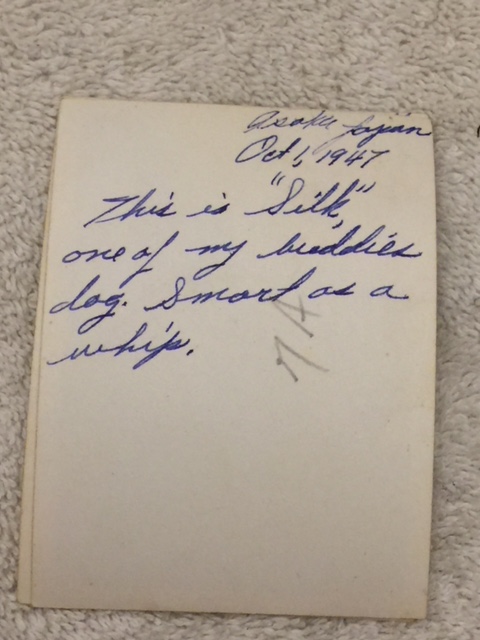 Asaka Japan
Oct 1, 1947
This is "Silk",
one of my buddies
dog. Smart as a
whip.
7A